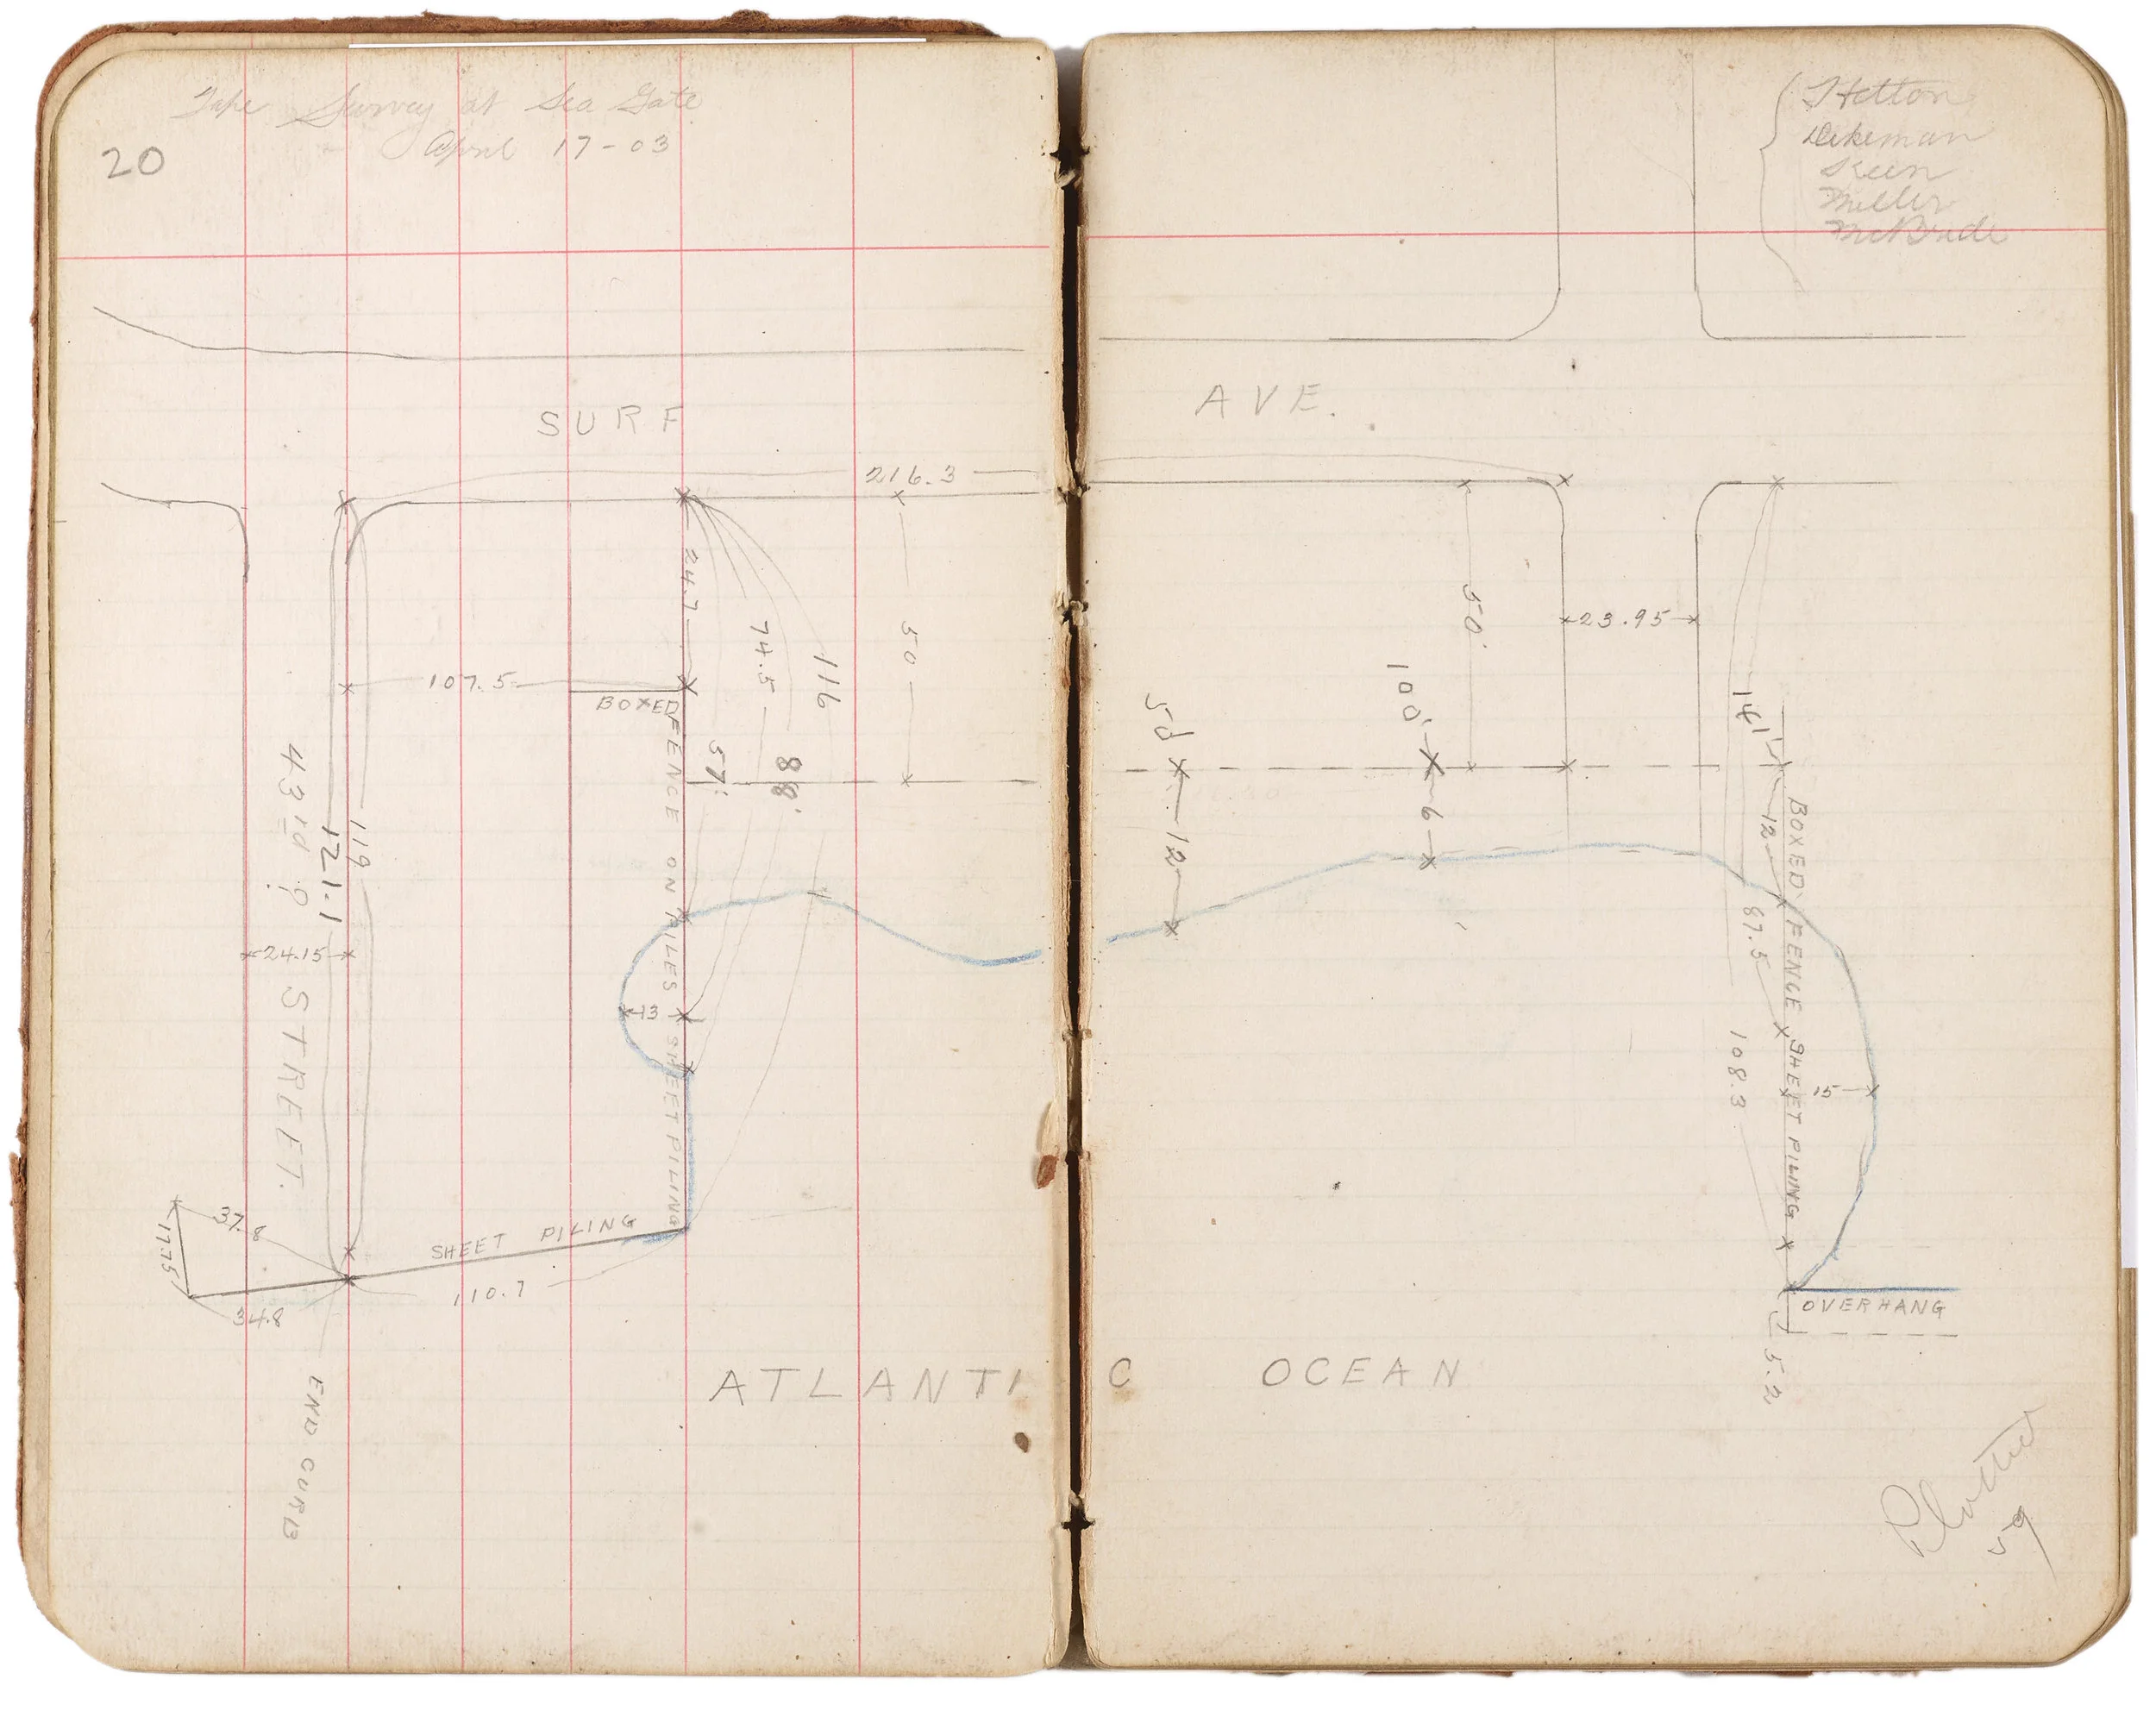 Tape Survey at Sea Gate
April 17-03
20
SURF
216.3
24.7
74.5
116
50
107.5
BOXED
FENCE ON PILES SHEET PILING
57'
88'
43rd ?
STREET.
121.1
119
24.15
13
37.8
17.75
34.8
SHEET PILING
110.7
END CURB
ATLANTIC OCEAN
Dikeman
Keen
Miller
McBride
AVE.
50'
23.95
100'
50'
141'
6
12
12
BOXED FENCE SHEET PILING
87.5
108.3
15
OVERHANG
5.2
Plotted